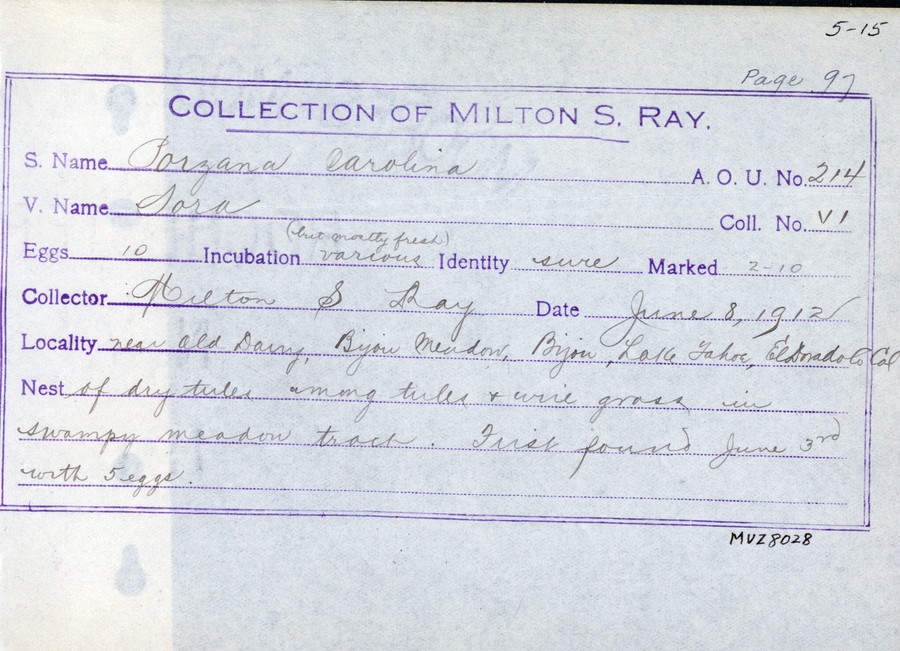 5-15
Page 97
COLLECTION OF MILTON S. RAY.
S. Name Porzana Carolina A. O. U. No. 214
V. Name Sora Coll. No. VI
(but mostly fresh)
Eggs 10 Incubation various Identity sure Marked 2-10
Collector Milton S Ray Date June 8, 1912
Locality near Old Dairy, Bijou Meadow, Bijou, Lake Tahoe, El Dorado Co Cal
Nest of dry tules among tules & wire grass in
swampy meadow tract. First found June 3rd
with 5 eggs.
MVZ8028